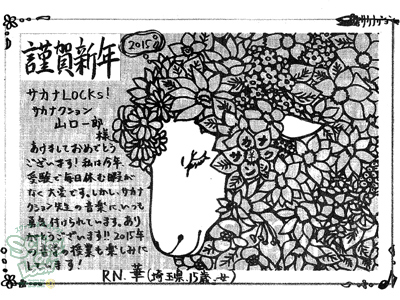 謹賀新年
2015
サカナLOCKS!
サカナクション
山口一郎
様
あけましておめでとう
ございます!私は今年
受験で毎日休む暇が
なく大変です。しかし、サカナ
クション先生の音楽にいつも
勇気付けられています。あり
がとうございます!!2015年
の音学の授業も楽しみに
しています!
サカナクション
R.N. 華(埼玉県.15歳.女)